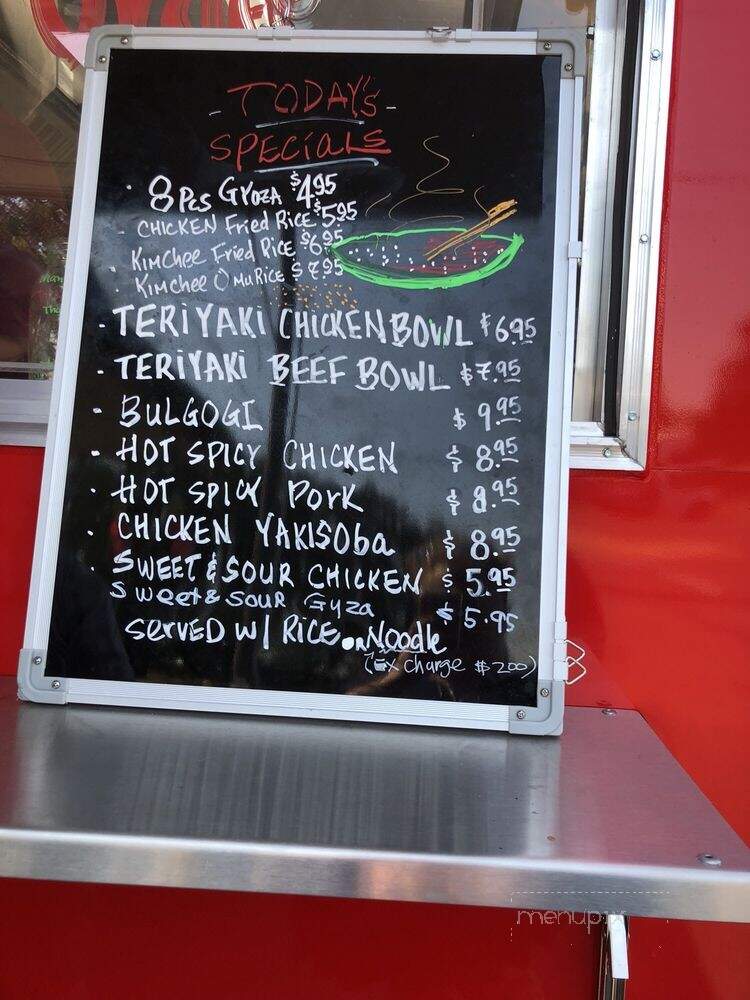 - TODAY'S -
SPECiaLS
· 8 Pcs GYOZA $4.95
· CHICKEN Fried Rice $5.95
· KimChee Fried Rice $6.95
· KimChee OmuRice $7.95
- TERiYAKi CHICKEN BOWL $6.95
- TERiYAKi BEEF BOWL $7.95
- BULGOGI $9.95
- HOT SPICY CHICKEN $8.95
· HOT SPICY PORK $8.95
· CHICKEN YAKISOba $8.95
· SWEET & SOUR CHICKEN $5.95
Sweet & Sour Gyza $5.95
SERVED W/ RiCE or Noodle
(Ex charge $2.00)
menupix